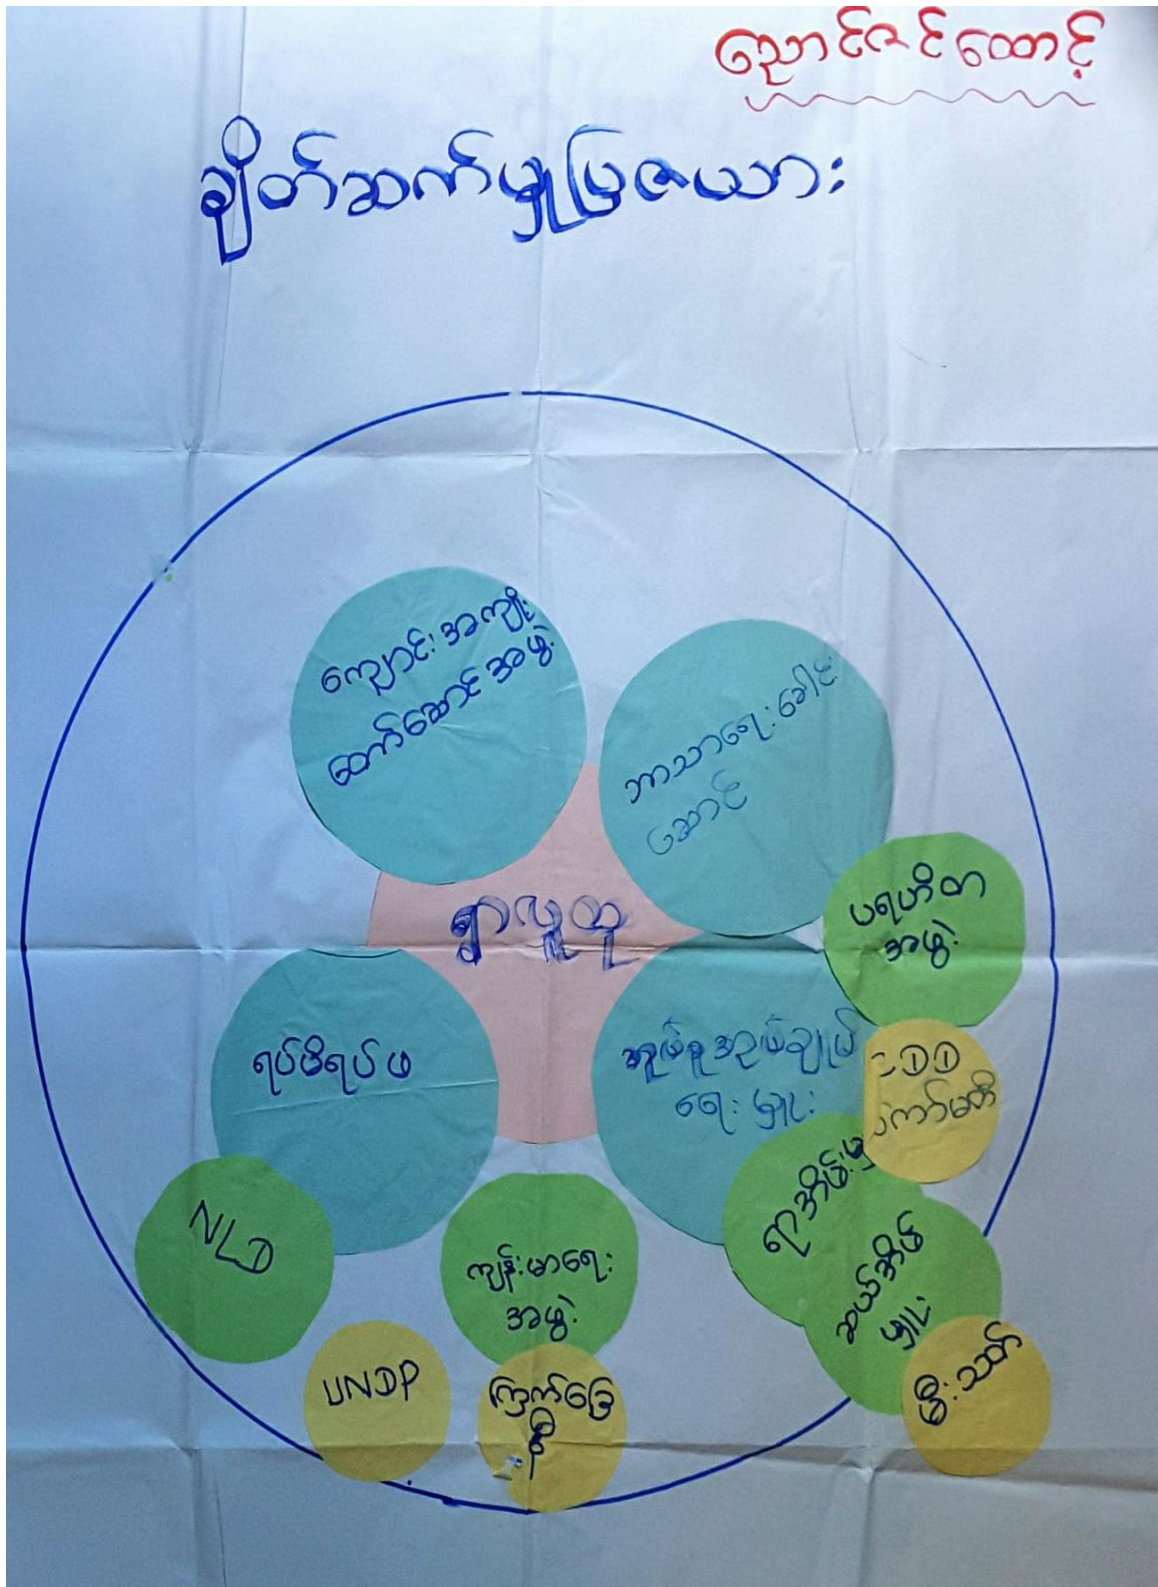 ညောင်ဇင်ထောင့်
ချိတ်ဆက်မှုပြဇယား
ကျောင်းအကျိုး
တော်ဆောင်အဖွဲ့
ဘာသာရေးခေါင်း
ဆောင်
ရွာလူထု
ပရဟိတ
အဖွဲ့
ရပ်မိရပ်ဖ
အုပ်စုအုပ်ချုပ်
ရေးမှူး
CDD
ကော်မတီ
ရာအိမ်မှူး
ဆယ်အိမ်
မှူး
NLD
ကျန်းမာရေး
အဖွဲ့
UNDP
ကြက်ခြေ
နီ
မီးသတ်